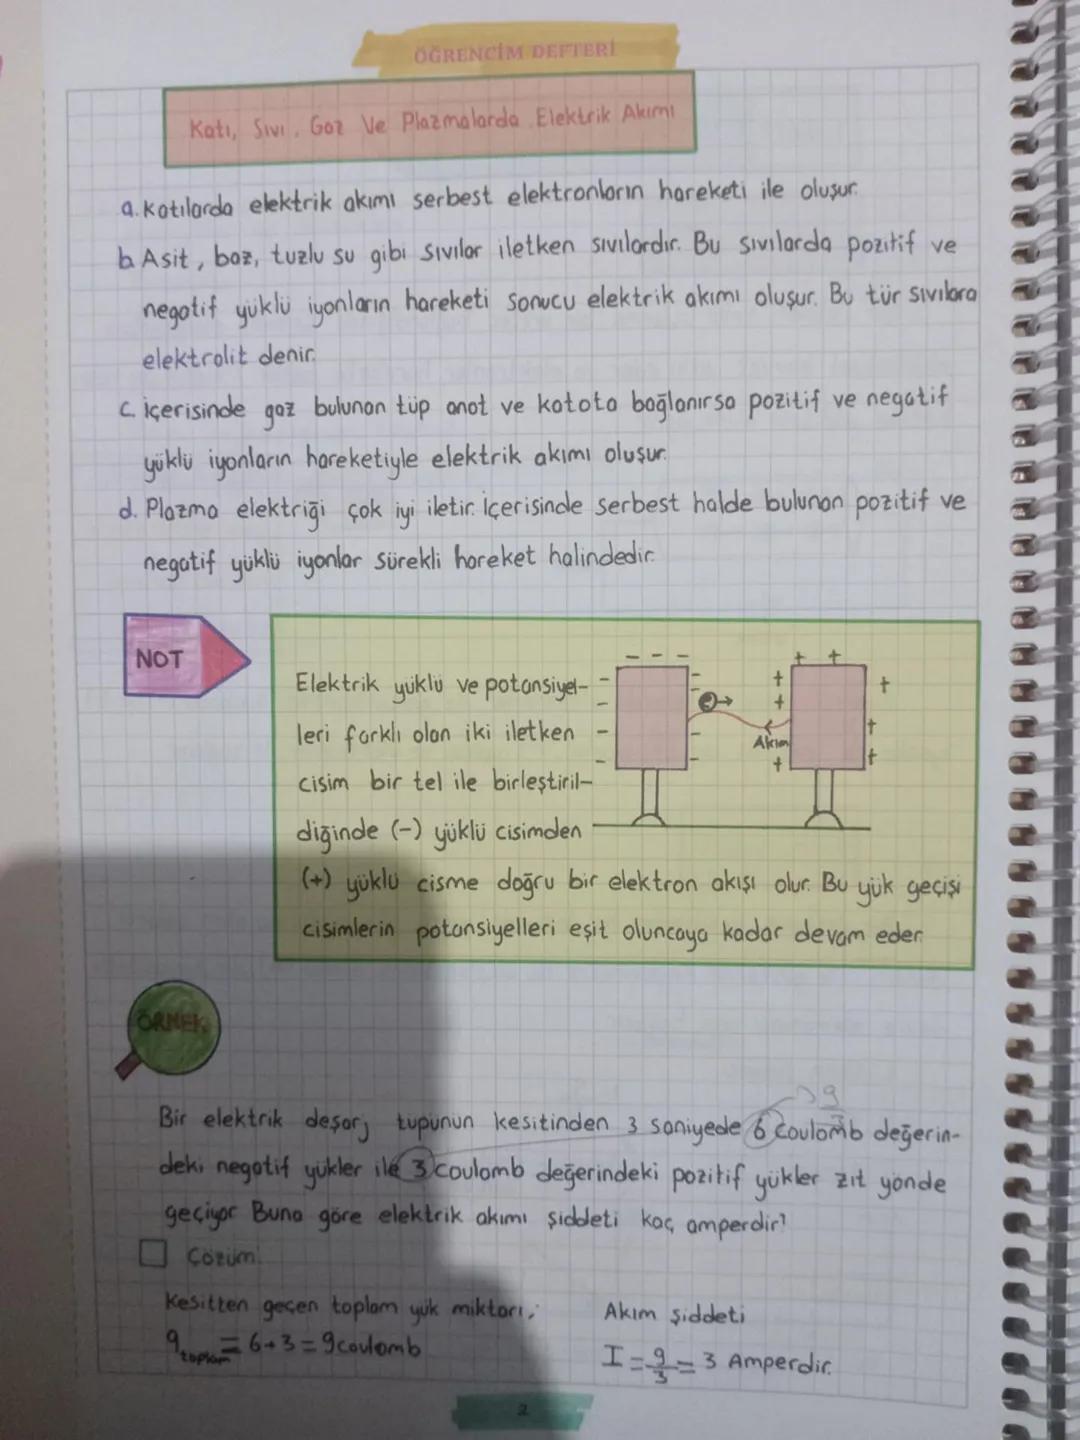 ÖĞRENCİM DEFTERİ
Katı, Sıvı, Gaz Ve Plazmalarda Elektrik Akımı
a. Katılarda elektrik akımı serbest elektronların hareketi ile oluşur.
b. Asit, baz, tuzlu su gibi sıvılar iletken sıvılardır. Bu sıvılarda pozitif ve
negatif yüklü iyonların hareketi sonucu elektrik akımı oluşur. Bu tür sıvılara
elektrolit denir.
c. içerisinde gaz bulunan tüp anot ve katota bağlanırsa pozitif ve negatif
yüklü iyonların hareketiyle elektrik akımı oluşur.
d. Plazma elektriği çok iyi iletir. İçerisinde serbest halde bulunan pozitif ve
negatif yüklü iyonlar sürekli hareket halindedir.
NOT
Elektrik yüklü ve potansiyel-
leri farklı olan iki iletken
cisim bir tel ile birleştiril-
diğinde (-) yüklü cisimden
(+) yüklü cisme doğru bir elektron akışı olur. Bu yük geçişi
cisimlerin potansiyelleri eşit oluncaya kadar devam eder.
- - -
+ +
e
Akım
ÖRNEK
9
Bir elektrik deşarj tüpünün kesitinden 3 saniyede 6 coulomb değerin-
deki negatif yükler ile 3 coulomb değerindeki pozitif yükler zıt yönde
geçiyor. Buna göre elektrik akımı şiddeti kaç amperdir?
Çözüm:
Kesitten geçen toplam yük miktarı;
q toplam = 6+3 = 9 coulomb
Akım şiddeti
I = 9/3 = 3 Amperdir.
2